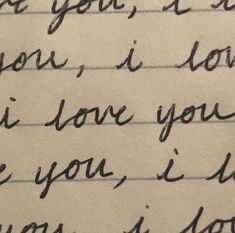 e you, i l
you, i lov
i love you
e you, i l
you i lo